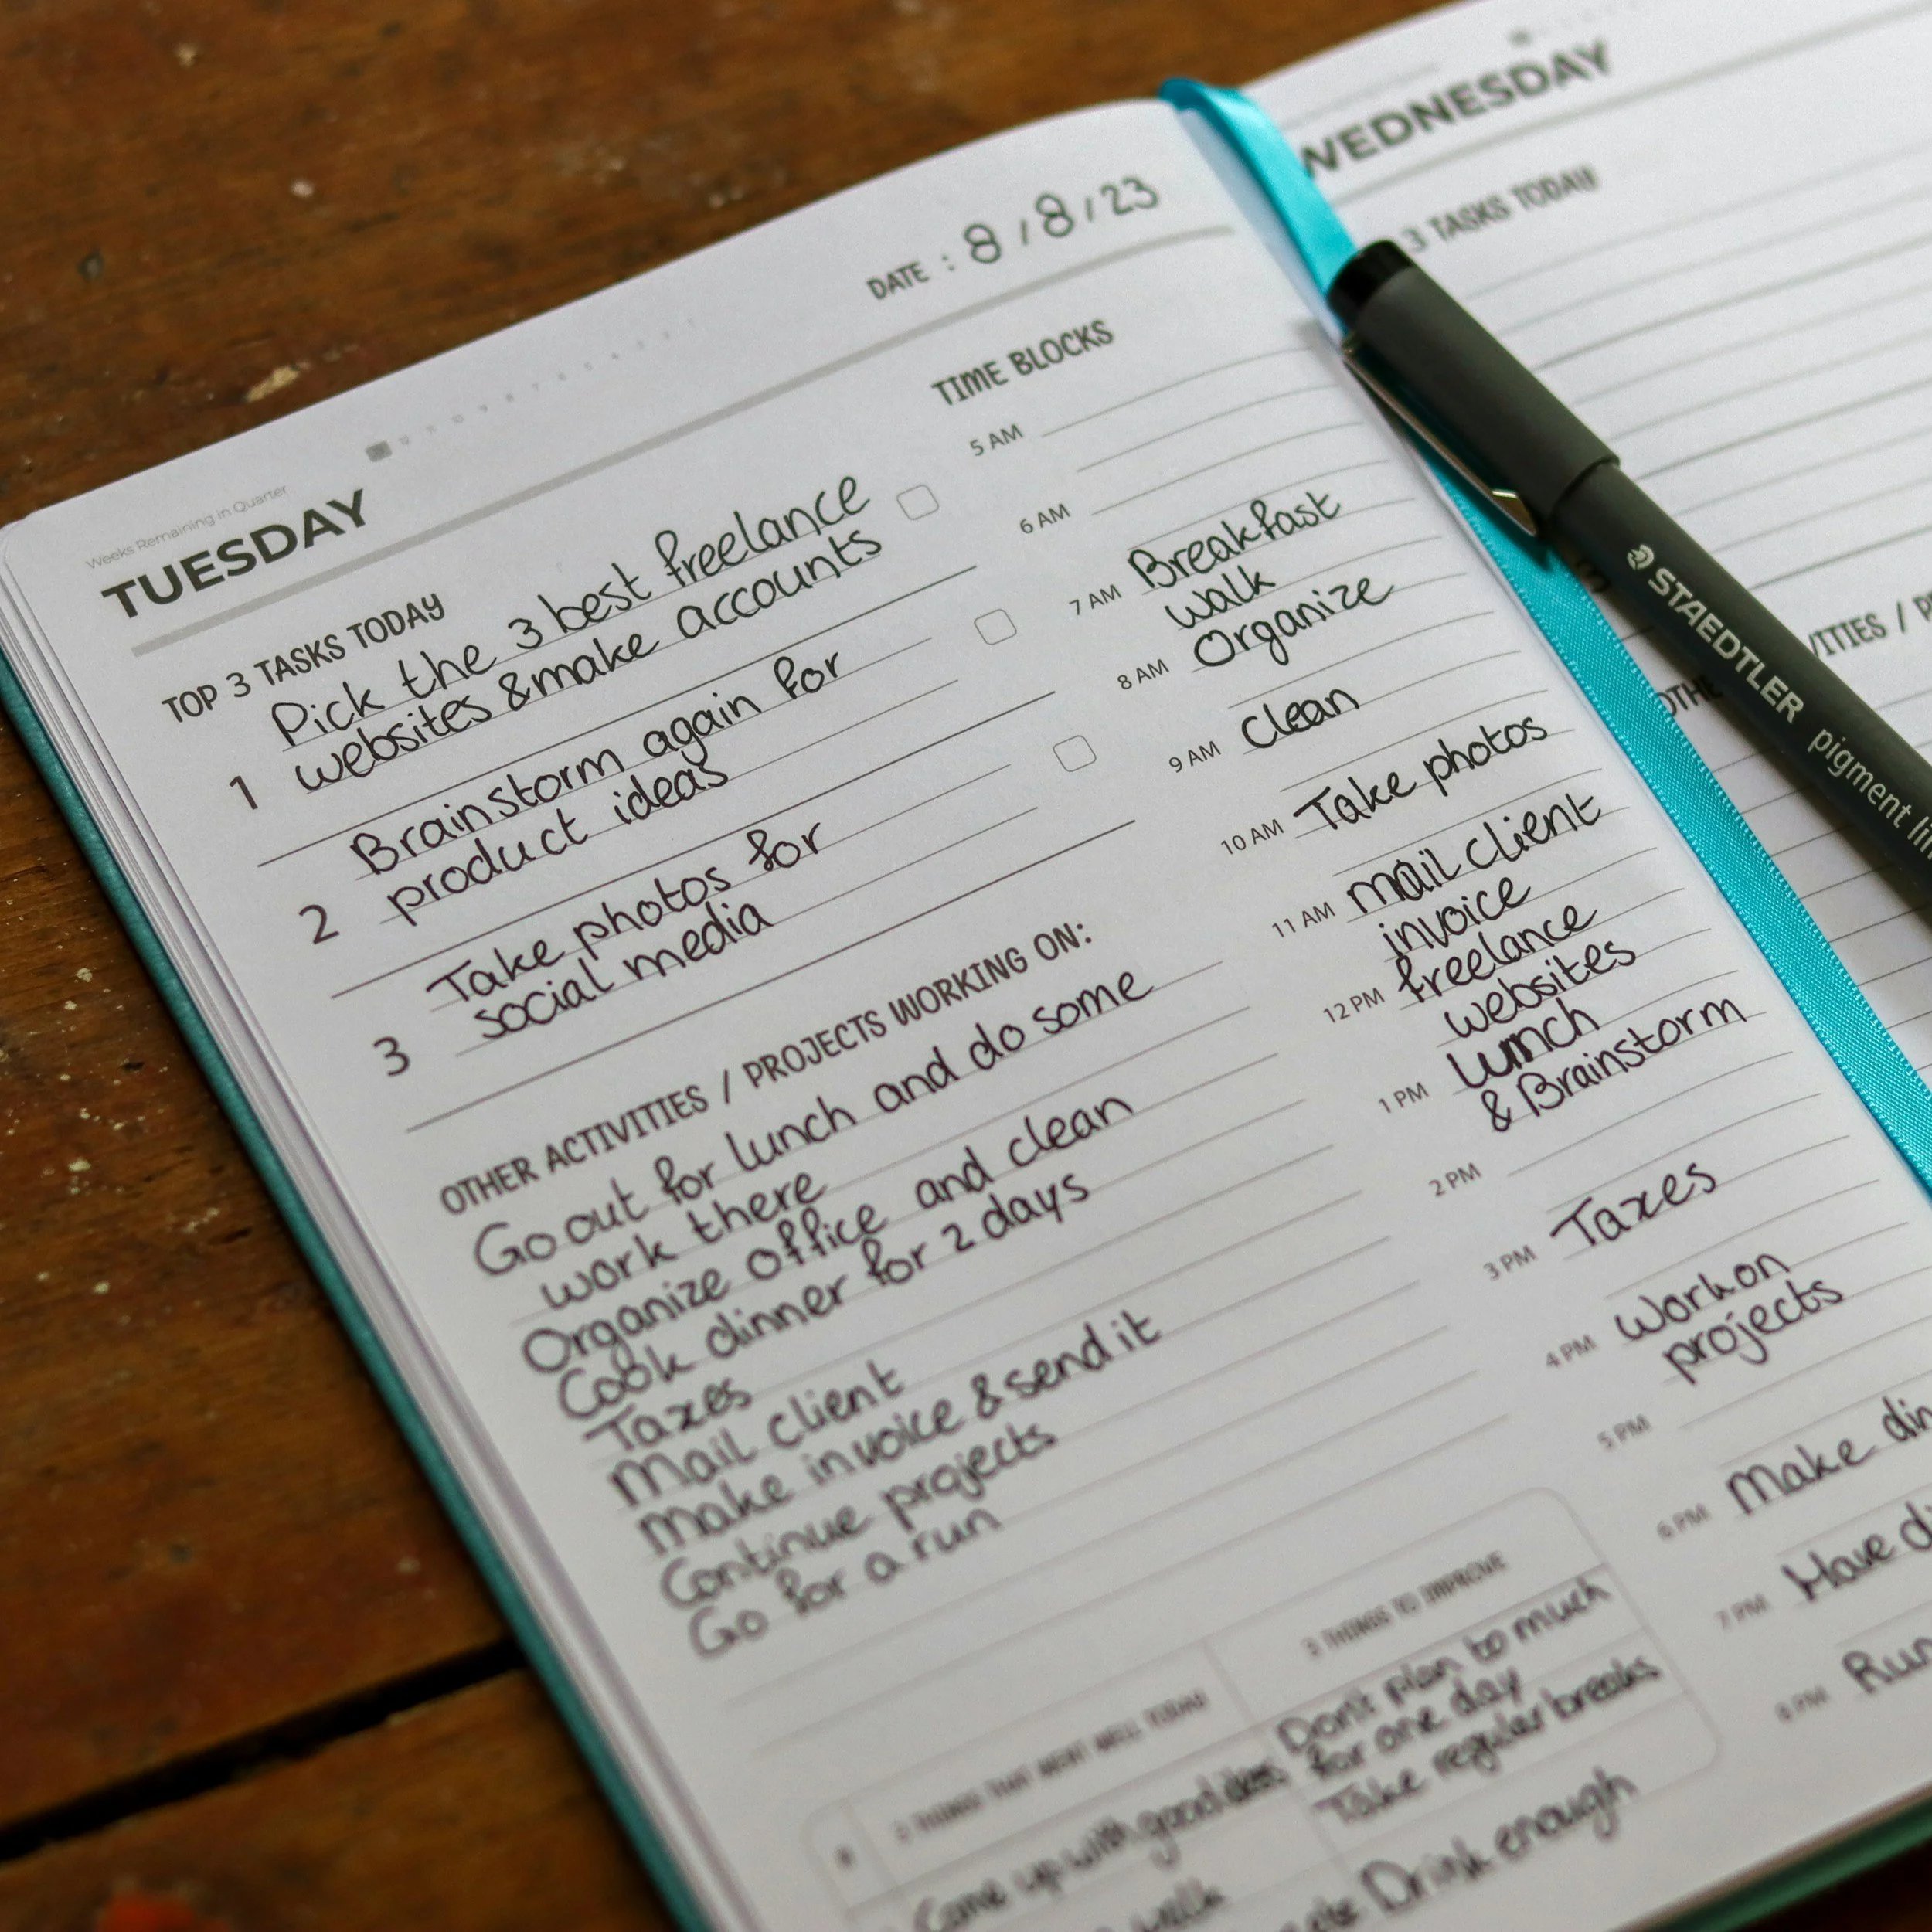 Weeks Remaining in Quarter
TUESDAY
DATE : 8 / 8 / 23
TOP 3 TASKS TODAY
1
Pick the 3 best freelance
websites & make accounts
2
Brainstorm again for
product ideas
3
Take photos for
social media
OTHER ACTIVITIES / PROJECTS WORKING ON:
Go out for lunch and do some
work there
Organize office and clean
Cook dinner for 2 days
Taxes
Mail client
Make invoice & send it
Continue projects
Go for a run
TIME BLOCKS
5 AM
6 AM
7 AM Breakfast
walk
8 AM Organize
9 AM Clean
10 AM Take photos
11 AM mail client
invoice
12 PM freelance
websites
1 PM lunch
& Brainstorm
2 PM
3 PM Taxes
4 PM Work on
projects
5 PM
6 PM Make din
7 PM Have di
8 PM Run
THINGS THAT WENT WELL TODAY
Come up with good ideas
walk
3 THINGS TO IMPROVE
Don't plan to much
for one day
Take regular breaks
Drink enough
WEDNESDAY
3 TASKS TODAY
OTHE
VITIES / P
STAEDTLER pigment li